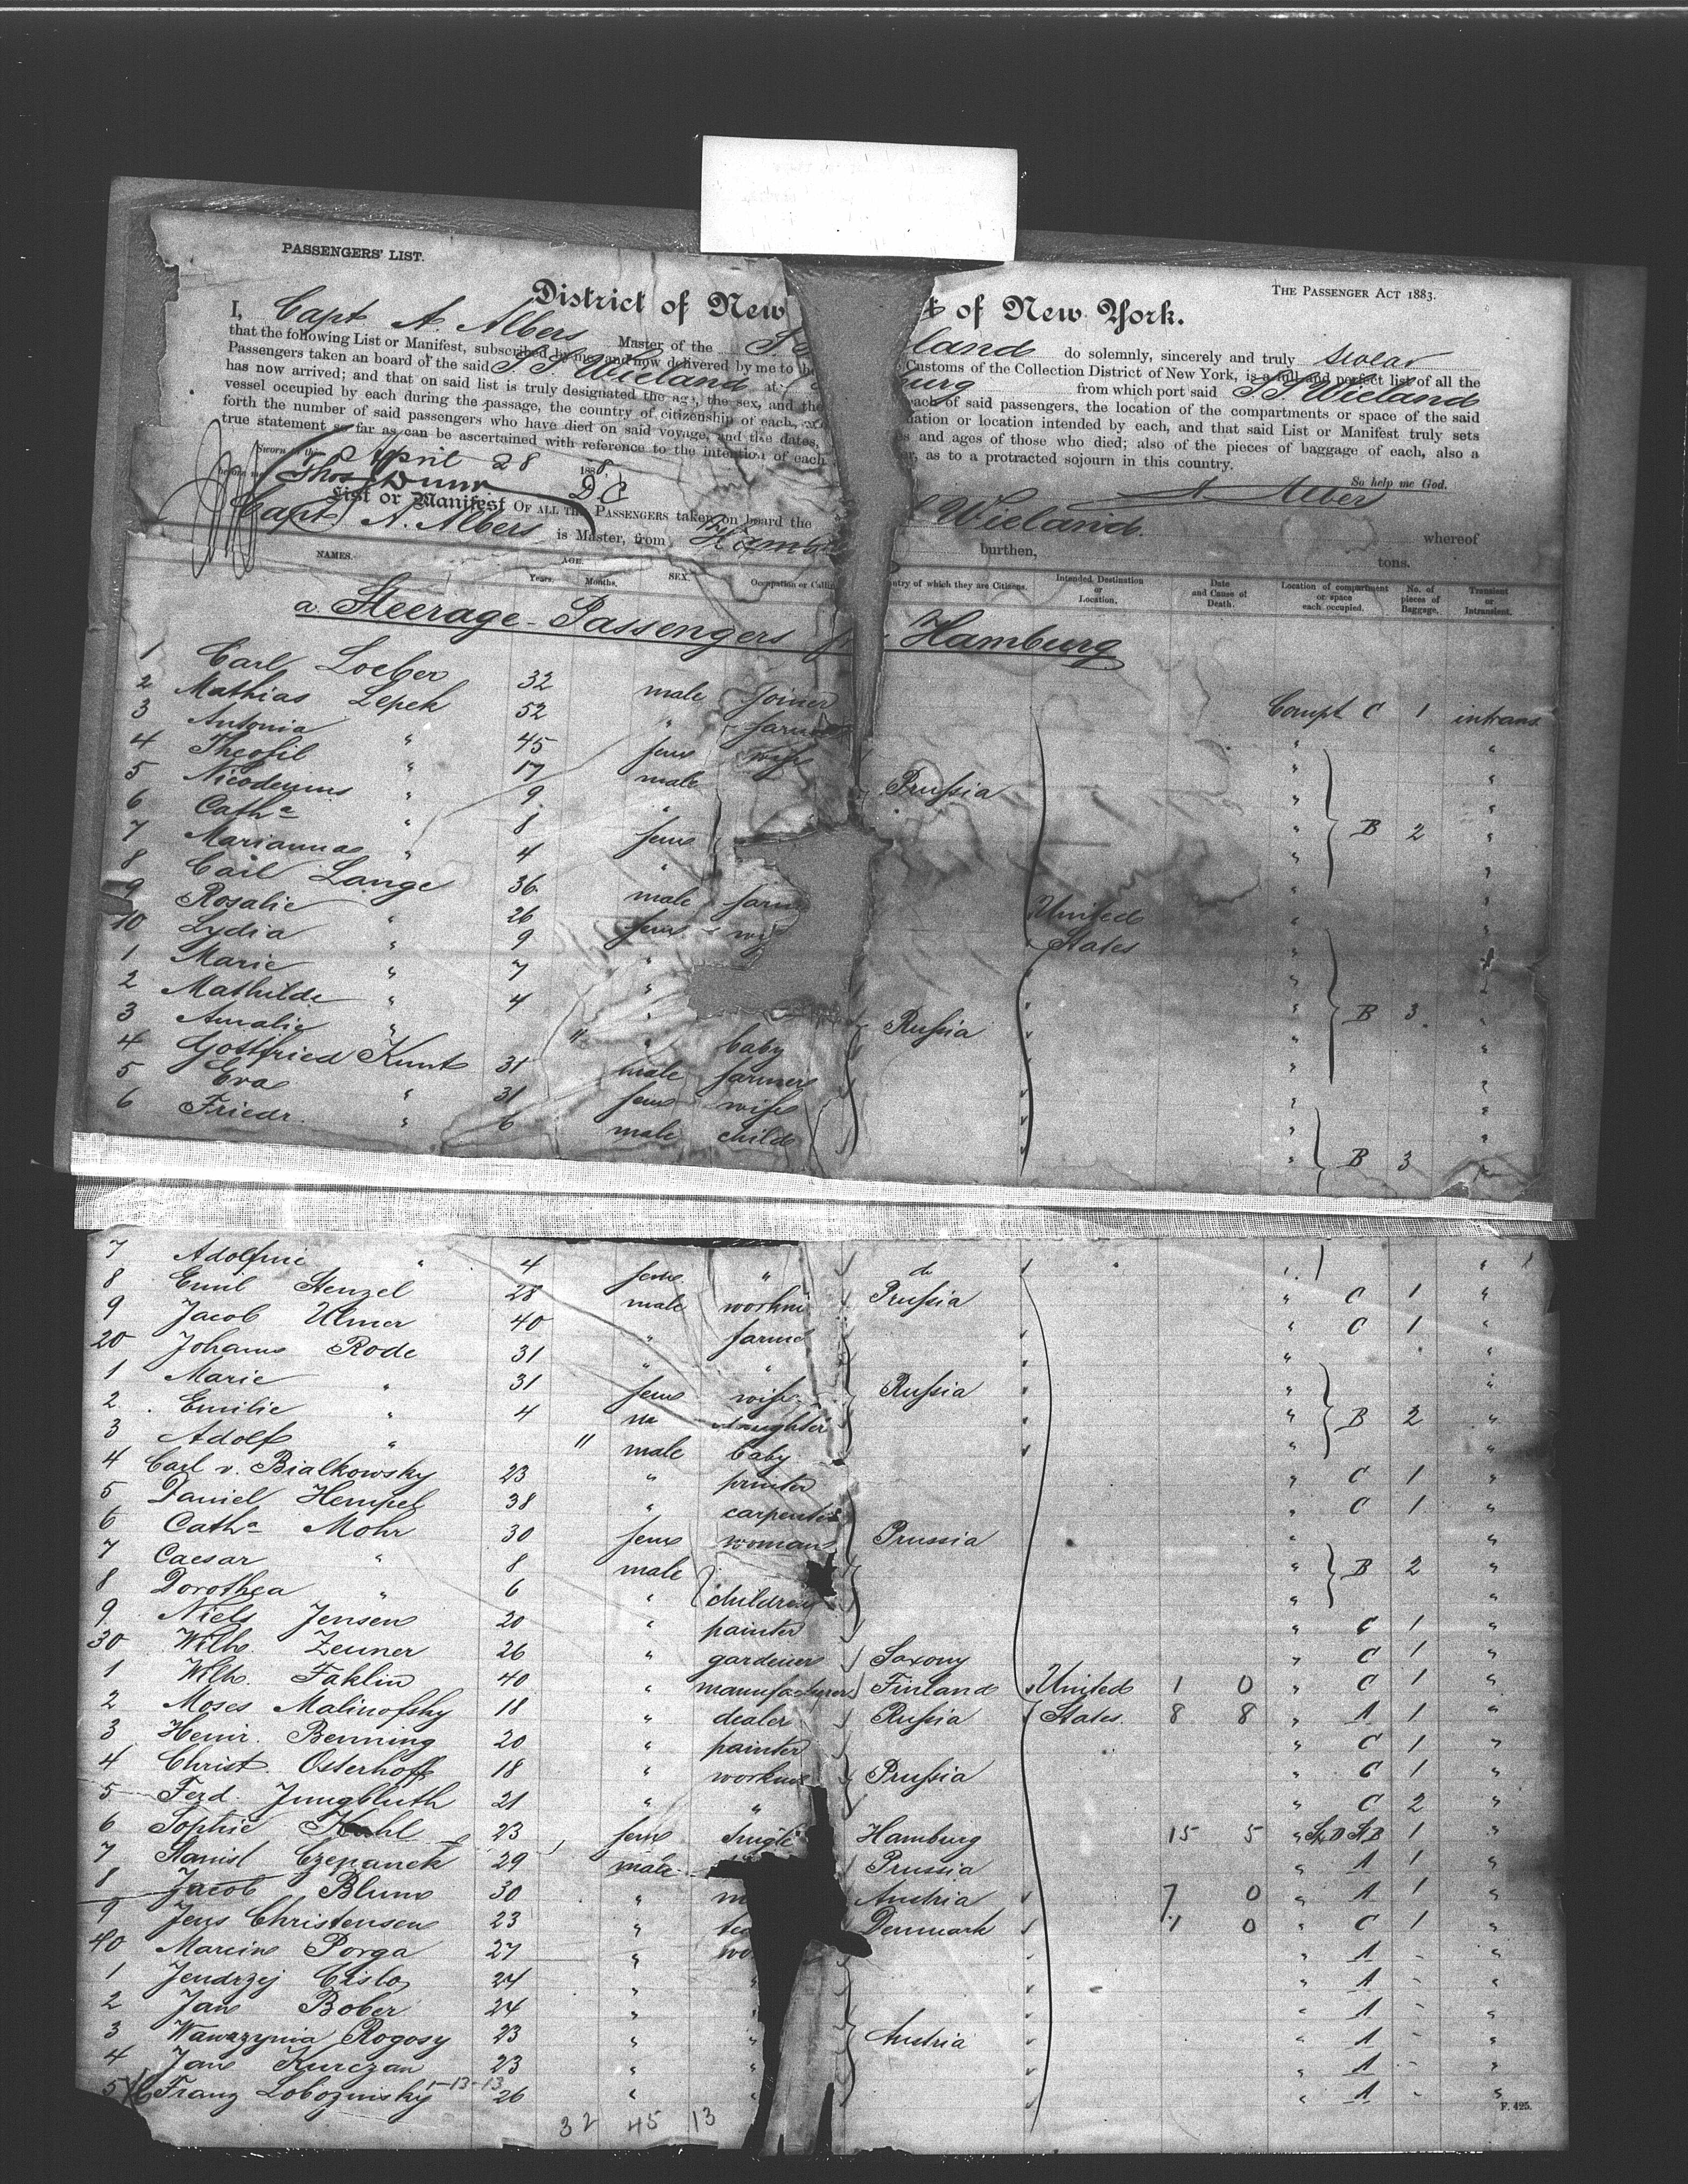 PASSENGERS' LIST.
THE PASSENGER ACT 1883.
District of New of New York.
I, Capt A. Albers Master of the land do solemnly, sincerely and truly swear
that the following List or Manifest, subscribed by me, and now delivered by me to the Customs of the Collection District of New York, is a full and perfect list of all the
Passengers taken on board of the said SS Wieland at burg from which port said SS Wieland
has now arrived; and that on said list is truly designated the age, the sex, and the each of said passengers, the location of the compartments or space of the said
vessel occupied by each during the passage, the country of citizenship of each, nation or location intended by each, and that said List or Manifest truly sets
forth the number of said passengers who have died on said voyage, and the dates, and ages of those who died; also of the pieces of baggage of each, also a
true statement so far as can be ascertained with reference to the intention of each as to a protracted sojourn in this country.
Sworn to this April 28 1888 So help me God.
before me Thos Dunn D C A Albers
List or Manifest OF ALL THE PASSENGERS taken on board the Wieland whereof
Capt A. Albers is Master, from Hambu burthen, tons.
NAMES. AGE. Years. Months. SEX. Occupation or Calling Country of which they are Citizens. Intended Destination or Location. Date and Cause of Death. Location of compartment or space each occupied. No. of pieces of Baggage. Transient or Intransient.
a. Steerage-Passengers Hamburg
1 Carl Loeber 32 male joiner Compt C 1 intrans
2 Mathias Lepek 52 " farmer " "
3 Antonia " 45 fem wife " "
4 Theofil " 17 male Prussia " "
5 Nicodemus " 9 " " B 2 "
6 Catha " 8 fem " "
7 Marianna " 4 " " "
8 Carl Lange 36 male farm United " "
9 Rosalie " 26 fem wif States " "
10 Lydia " 9 " "
1 Marie " 7 " " B 3 "
2 Mathilde " 4 " " "
3 Amalie " 11 " baby Russia " "
4 Gottfried Kunt 31 male farmer " "
5 Eva " 31 fem wife " "
6 Friedr. " 6 male child " B 3 "
7 Adolfine " 4 fem " do " "
8 Emil Henzel 28 male workm Prussia " C 1 "
9 Jacob Ulmer 40 " farme " C 1 "
20 Johann Rode 31 " " " "
1 Marie " 31 fem wife Russia " "
2 Emilie " 4 " daughter " B 2 "
3 Adolf " 11 male baby " "
4 Carl v. Bialkowsky 23 " printer " C 1 "
5 Daniel Hempel 38 " carpenter " C 1 "
6 Catha Mohr 30 fem woman Prussia " "
7 Caesar " 8 male " B 2 "
8 Dorothea " 6 " children " "
9 Niels Jensen 20 " painter " C 1 "
30 Wilh. Zeuner 26 " gardener Saxony " C 1 "
1 Wilh. Faklin 40 " manufacturer Finland United 1 0 " C 1 "
2 Moses Malinofsky 18 " dealer Russia States. 8 8 " A 1 "
3 Heinr. Benning 20 " painter " C 1 "
4 Christ. Osterhoff 18 " workm Prussia " C 1 "
5 Ferd. Jungbluth 21 " " " C 2 "
6 Sophie 23 fem single Hamburg 15 5 " 1 "
7 Stanisl Czepanek 29 male Prussia " A 1 "
8 Jacob Blum 30 " m Austria 7 0 " A 1 "
9 Jens Christensen 23 " Denmark 1 0 " C 1 "
40 Marcin Porga 27 " wo " A - "
1 Jendrzej Cislo 24 " " " A - "
2 Jan Bober 24 " " " A - "
3 Wawrzynia Rogosy 23 " " Austria " A - "
4 Jan Kurczan 23 " " " A - "
5 Franz Lobozinsky 26 " " " A - "
1-13-13
32 45 13
F. 425.